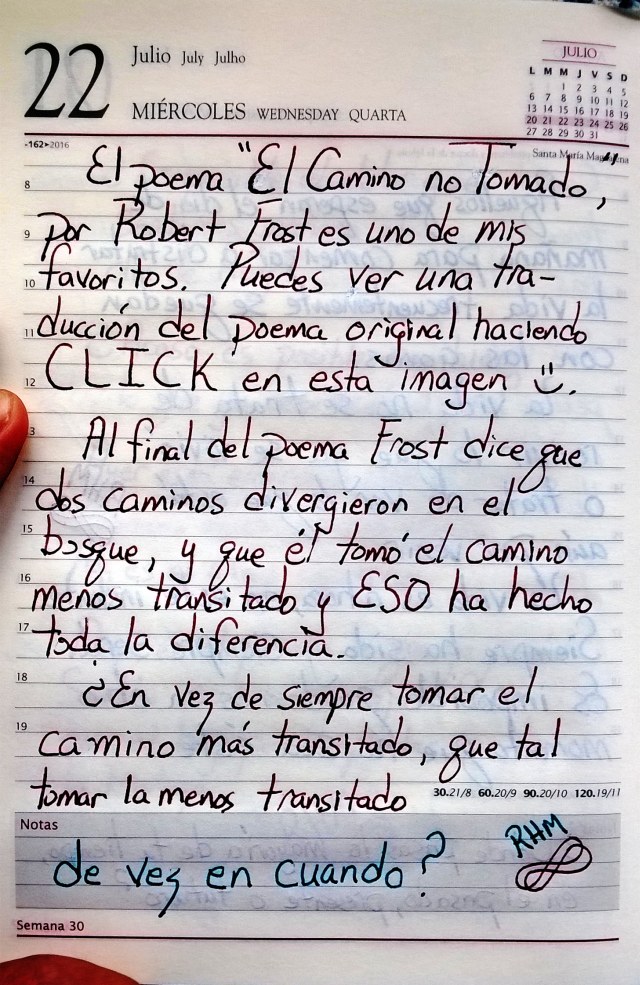 22
Julio July Julho
MIÉRCOLES WEDNESDAY QUARTA
JULIO
L M M J V S D
1 2 3 4 5
6 7 8 9 10 11 12
13 14 15 16 17 18 19
20 21 22 23 24 25 26
27 28 29 30 31
-162▸2016
Santa María
8 El poema "El Camino no Tomado,
9 por Robert Frost es uno de mis
10 favoritos. Puedes ver una tra-
11 ducción del poema original haciendo
12 CLICK en esta imagen
3 Al final del poema Frost dice que
14 dos caminos divergieron en el
15 bosque, y que él tomó el camino
16 menos transitado y ESO ha hecho
17 toda la diferencia.
18 ¿En vez de siempre tomar el
19 camino más transitado, que tal
tomar la menos transitado
30.21/8 60.20/9 90.20/10 120.19/11
Notas
de vez en cuando?
RHM
Semana 30